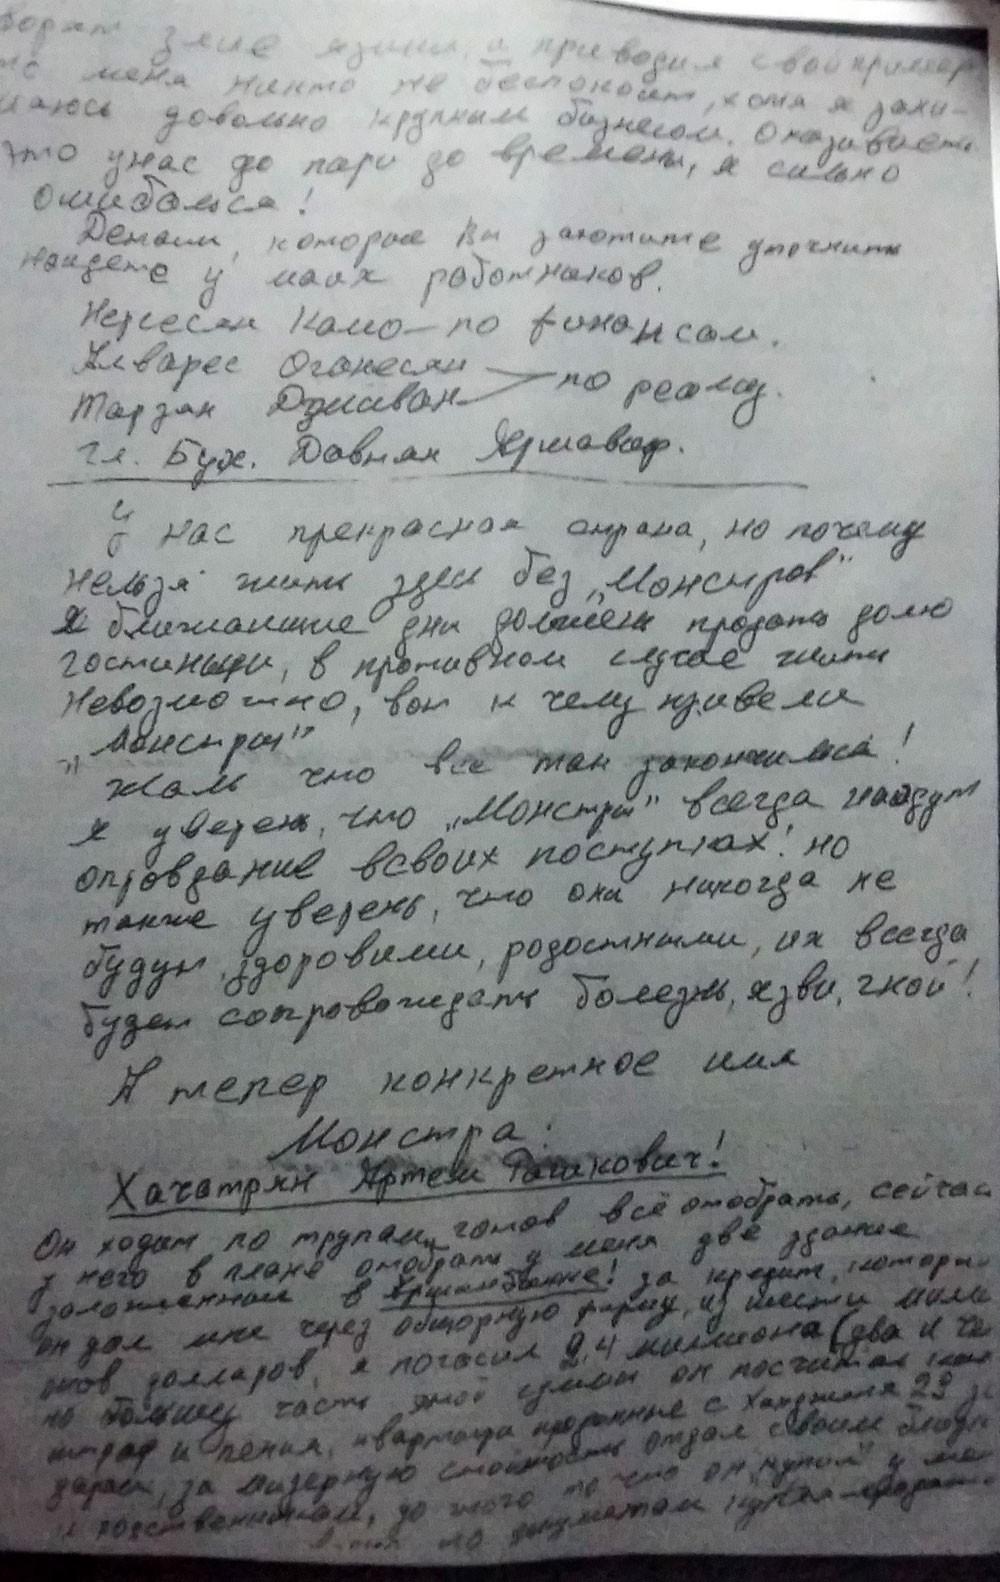 ворят злые языки, и приводил свой пример
меня никто не беспокоит, хотя я зани-
маюсь довольно крупным бизнесом. Оказывается
это у нас до пари до времени, я сильно
ошибался!
Детали, которые Вы захотите уточнить
найдете у моих работников.
Нерсесян Камо – по финансам.
Алварес Оганесян
Тарзян Дживан – по реализ.
Гл. Бух. Давтян Аршавир.
У нас прекрасная страна, но почему
нельзя жить здесь без „Монстров"
В ближайшие дни должен продать долю
гостиницы, в противном случае жить
невозможно, вот к чему привели
„Монстры"
Жаль что все так закончилось!
я уверен, что „Монстры" всегда найдут
оправдание в своих поступках! но
также уверень, что они никогда не
будут здоровими, родостными, их всегда
будет сопровождать болезнь, язви, гной!
А тепер конкретное имя
Монстра:
Хачатрян Артем Гагикович!
Он ходит по трупам, готов всё отобрать, сейчас
у него в плане отобрать у меня две здание
заложенном в Аршидбанке! за кредит,
он дал мне через обшорную фирму, из шести милли
онов долларов, я погасил 2,4 миллиона (два и
но большую часть этой суммы он посчитал как
штраф и пения, квартири проданные с Ханджяна 29
даром, за мизерную стоимость отдал своим близким
и родственникам, до того то что он „купил" у ме
по документам купля-продажи